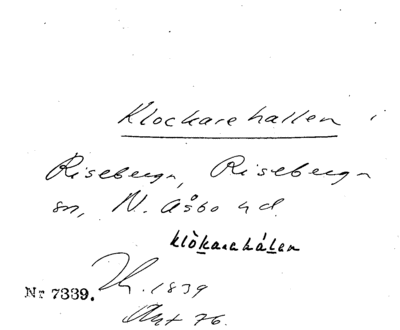 Klockarehallen i
Riseberga, Riseberga
sn, N. Åsbo hd.
klòkarehálen
Nr 7339. Th. 1839
Akt 76.